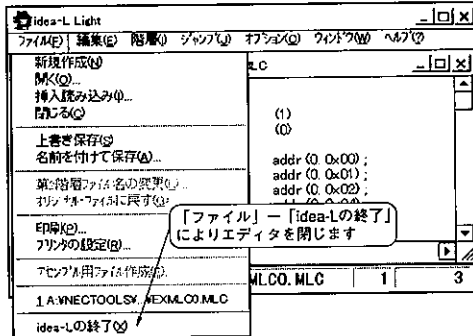 idea-L Light
ファイル(F) 編集(E) 階層(I) ジャンプ(J) オプション(O) ウィンドウ(W) ヘルプ(?)
新規作成(N)
開く(O)...
挿入読み込み(I)...
閉じる(C)
上書き保存(S)
名前を付けて保存(A)...
第2階層ファイル名の変更(L)...
オリジナル・ファイルに戻す(G)...
印刷(P)...
プリンタの設定(R)...
アセンブル用ファイル作成(E)...
1 A:¥NECTOOLS¥...¥EXMLC0.MLC
idea-Lの終了(X)
LC
(1)
(0)
addr (0, 0x00) ;
addr (0, 0x01) ;
addr (0, 0x02) ;
「ファイル」ー「idea-Lの終了」
によりエディタを閉じます
MLC0.MLC 1 3